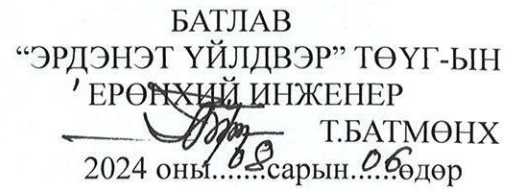 БАТЛАВ
“ЭРДЭНЭТ ҮЙЛДВЭР” ТӨҮГ-ЫН
ЕРӨНХИЙ ИНЖЕНЕР
Т.БАТМӨНХ
2024 оны...08...сарын...06...өдөр